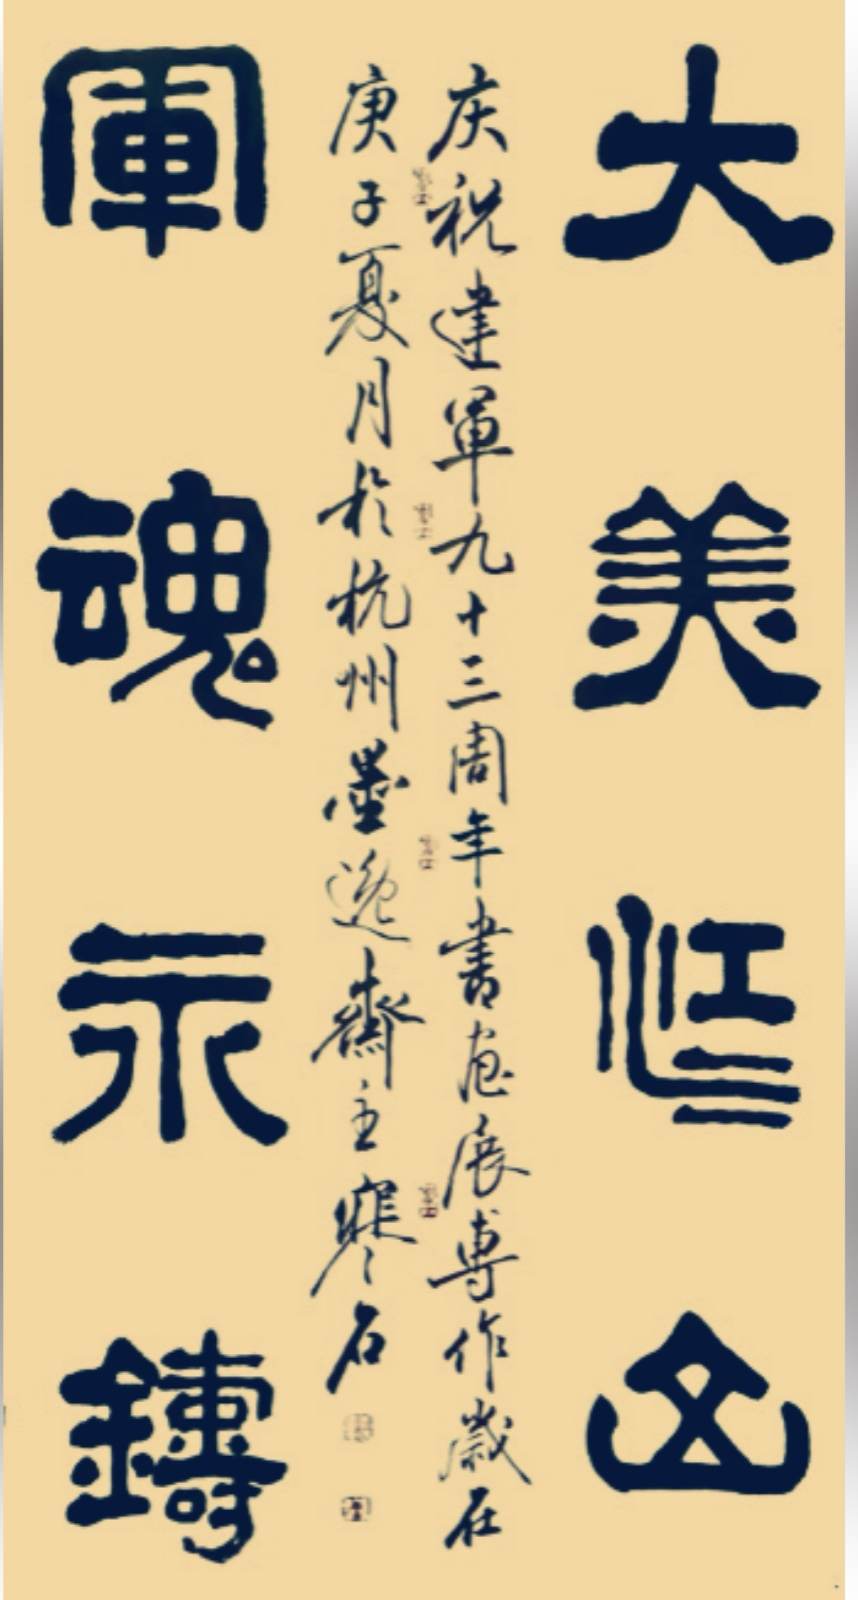 大美江山
庆祝建軍九十三周年書画展專作歲在
庚子夏月於杭州墨逸齋主寒石
軍魂永鑄